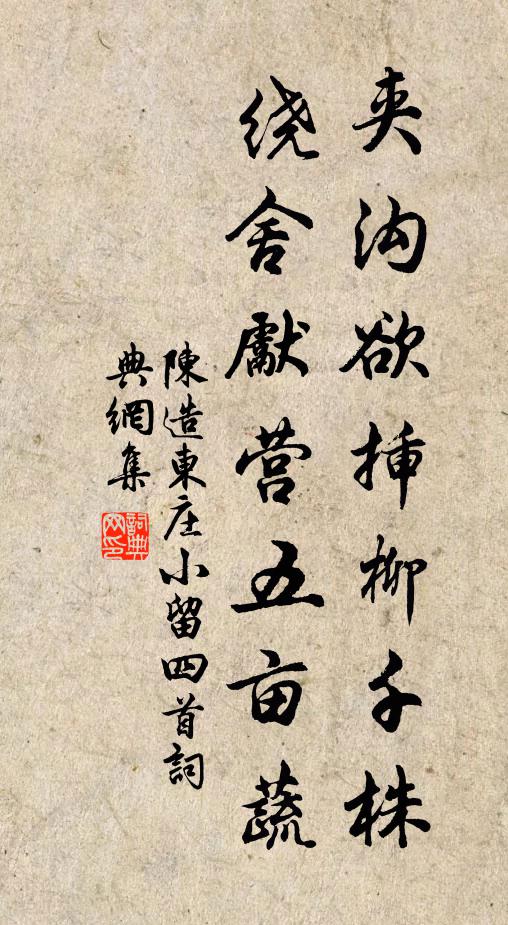 夹沟欲插柳千株
绕舍献营五亩蔬
陳造東庄小留四首詞
典網集
詞典网印